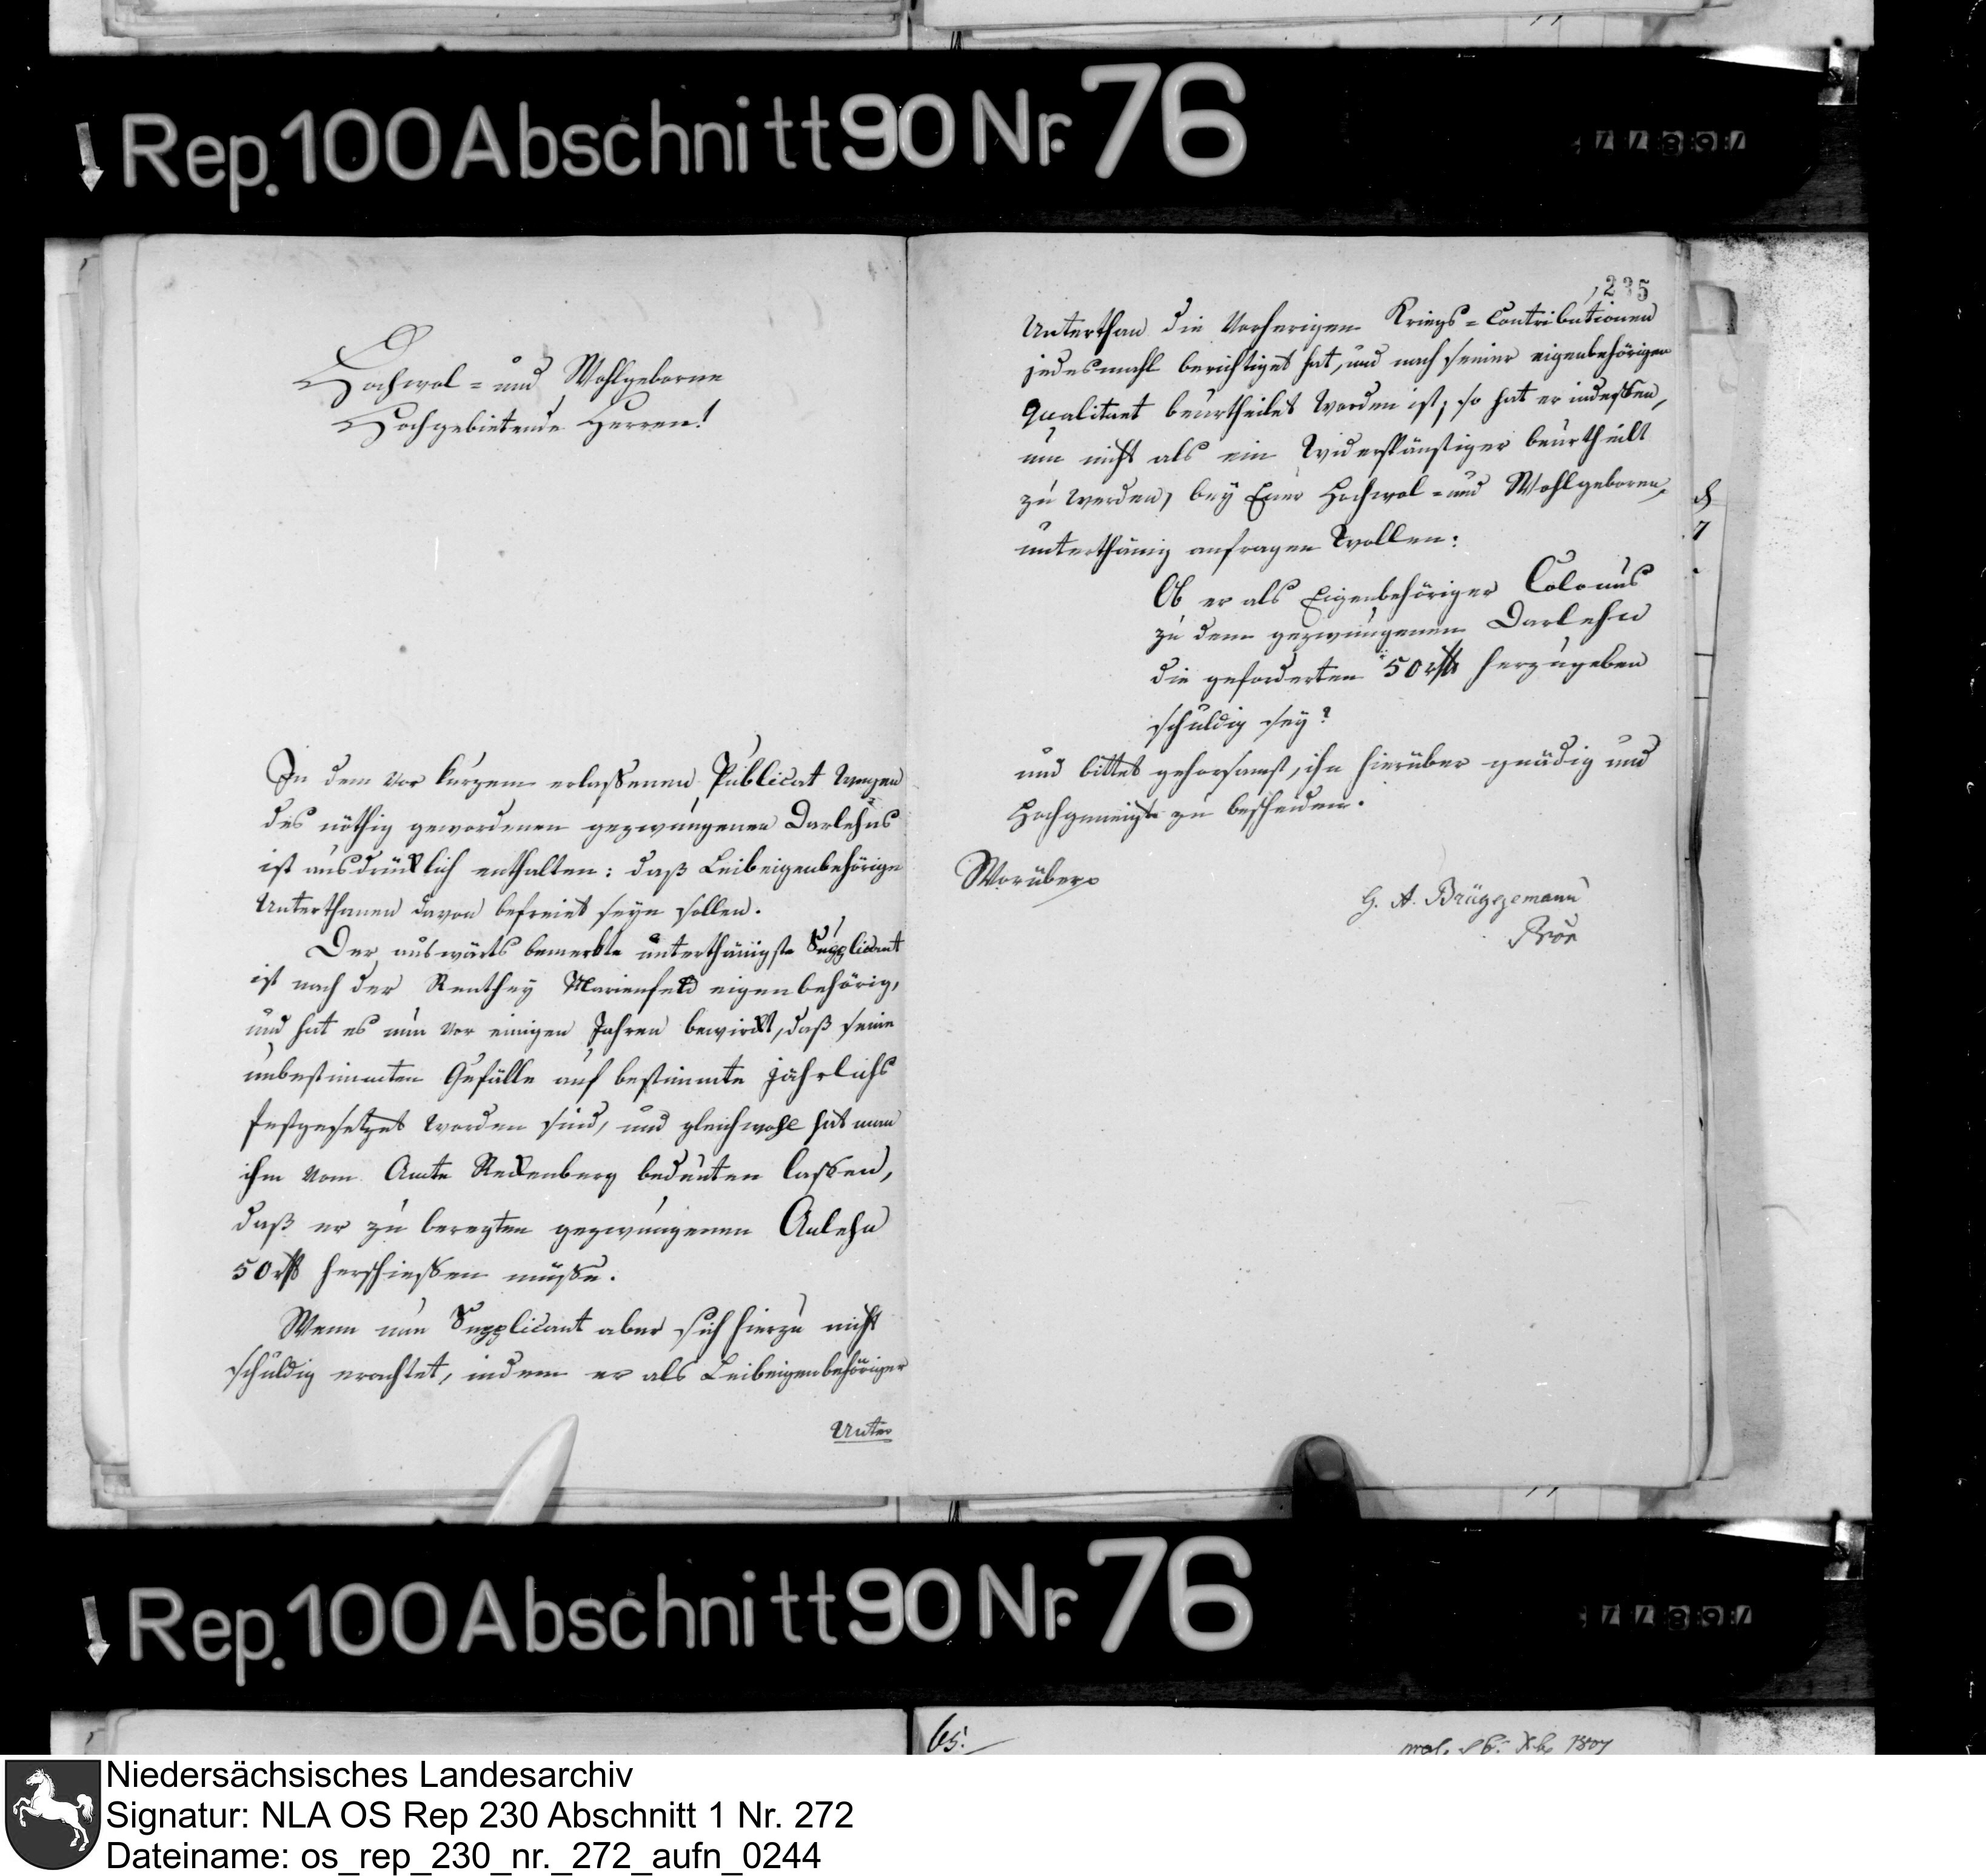 Rep. 100 Abschnitt 90 Nr. 76
Hochwol- und Wohlgeborne
Hochgebietende Herren!
In dem vor kurzem erlaßenen Publicat wegen
des nöthig gewordenen gezwungenen Darlehns
ist ausdrücklich enthalten: daß Leibeigenbehörige
Unterthanen davon befreiet seyn sollen.
Der auswärts bemerkte unterthänigste Supplicant
ist nach der Renthey Marienfeld eigenbehörig,
und hat es nun vor einigen Jahren bewirckt, daß seine
unbestimmten Gefälle auf bestimmte jährlichs
festgesetzet worden sind, und gleichwohl hat man
ihm vom Amte Reckenberg bedeuten laßen,
daß er zu beregten gezwungenen Anlehn
50 rth herschießen müße.
Wenn nun Supplicant aber sich hierzu nicht
schuldig erachtet, indem er als Leibeigenbehöriger
Unter
235
Unterthan die vorherigen Kriegs-Contributionen
jedesmahl berichtiget hat, und nach seiner eigenbehörigen
Qualitaet beurtheilet worden ist; so hat er indeßen,
um nicht als ein Widerspänstiger beurtheilt
zu werden, bey Euer Hochwol- und Wohlgeboren
unterthänig anfragen wollen:
Ob er als Eigenbehöriger Colonus
zu dem gezwungenen Darlehn
die geforderten 50 rth herzugeben
schuldig sey?
und bittet gehorsamst, ihn hierüber gnädig und
Hochgeneigt zu bescheiden.
Worüber
G. A. Brüggemann
Rep. 100 Abschnitt 90 Nr. 76
65.
Niedersächsisches Landesarchiv
Signatur: NLA OS Rep 230 Abschnitt 1 Nr. 272
Dateiname: os_rep_230_nr._272_aufn_0244